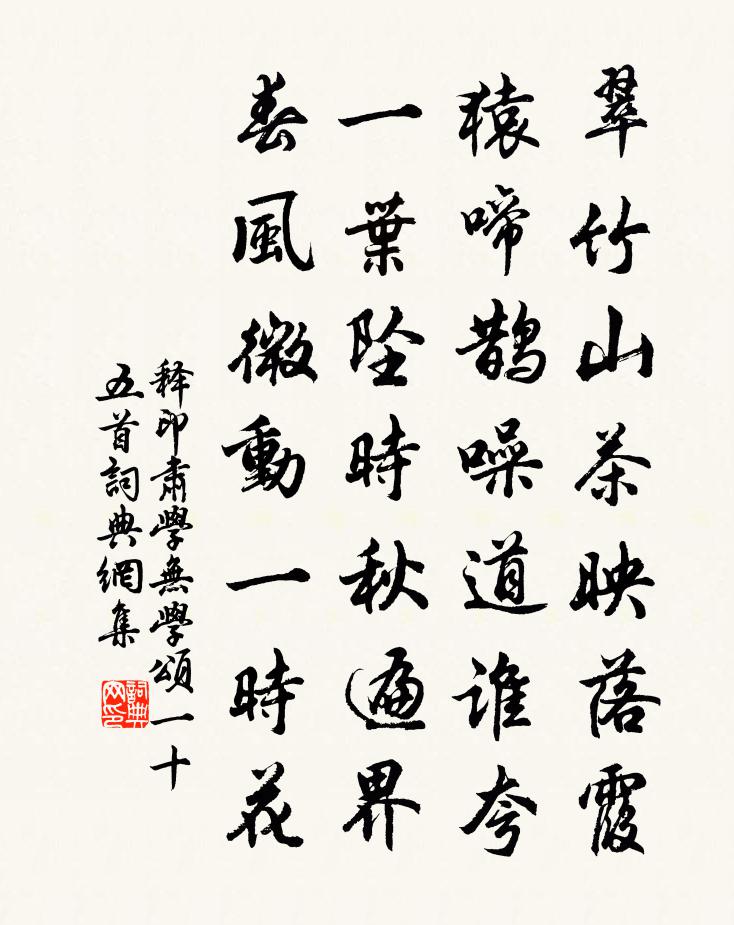 翠竹山茶映落霞
猿啼鵲噪道誰夸
一葉墜時秋遍界
春風微動一時花
释印肅學無學頌一十
五首詞典網集
詞典
网印